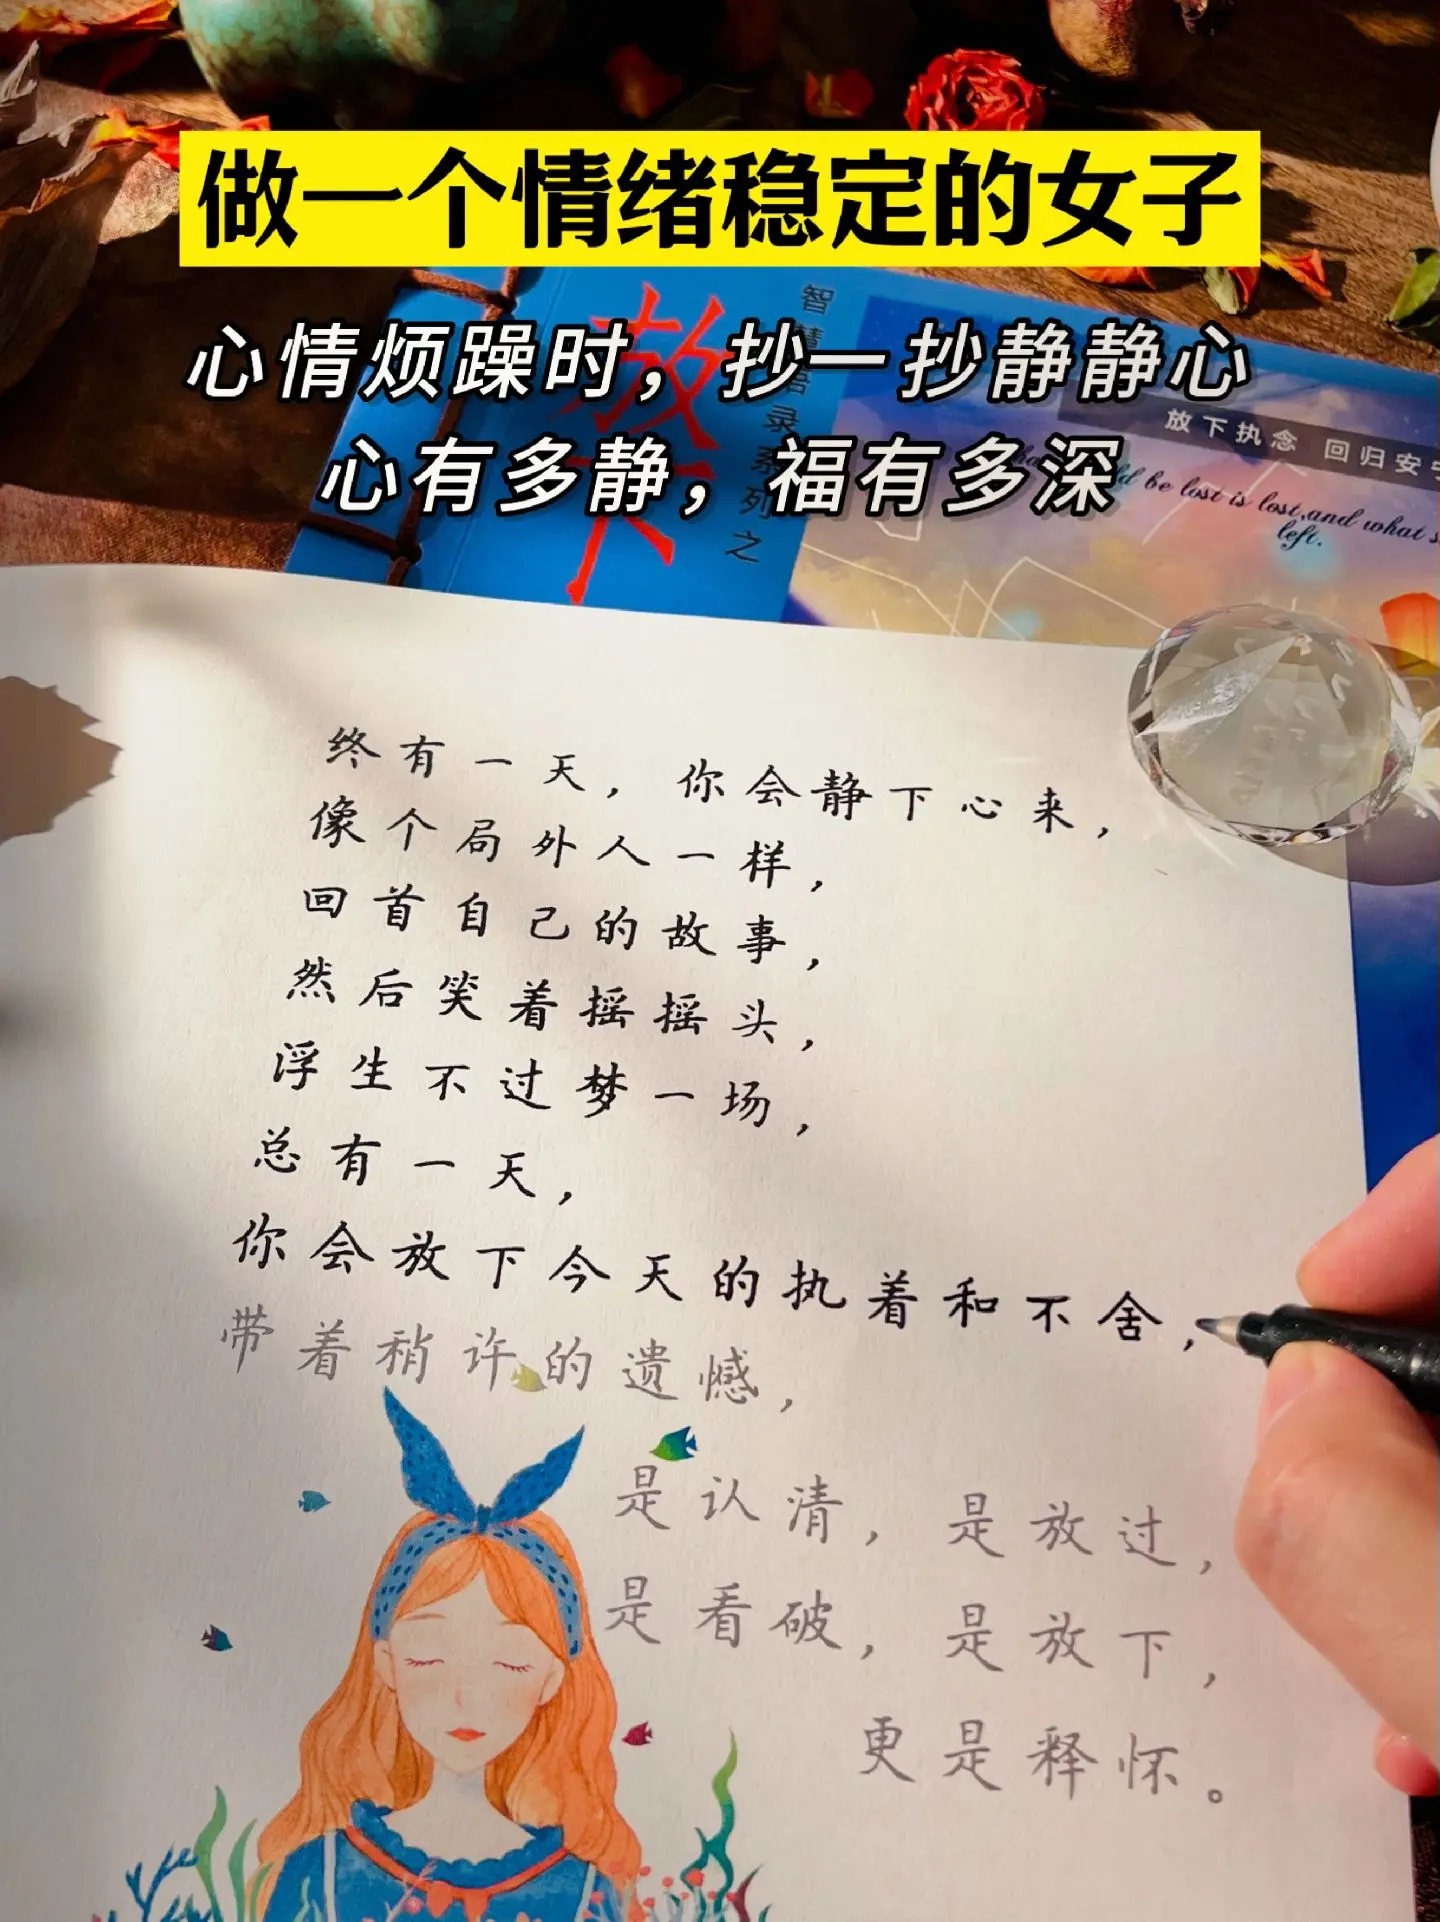 做一个情绪稳定的女子
心情烦躁时，抄一抄静静心
心有多静，福有多深
智慧语录系列之
放下
放下执念 回归安宁
be lost is lost,and what s
left.
终有一天，你会静下心来，
像个局外人一样，
回首自己的故事，
然后笑着摇摇头，
浮生不过梦一场，
总有一天，
你会放下今天的执着和不舍，
带着稍许的遗憾，
是认清，是放过，
是看破，是放下，
更是释怀。